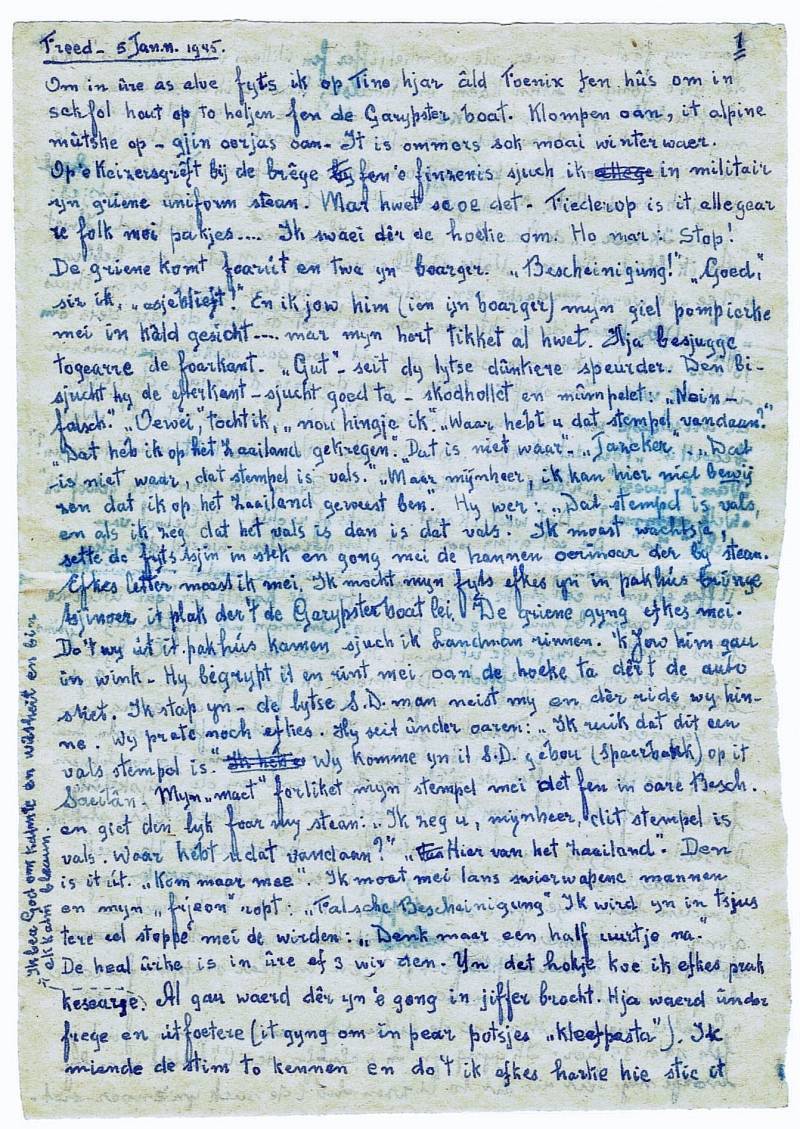 Freed - 5 Jann. 1945. 1
Om in ûre as alve fyts ik op Tino hjar âld Foenix fen hûs om in
sekfol hout op to heljen fen de Garypster boat. Klompen oan, it alpine
mûtske op - gjin oerjas oan - It is ommers sok moai winterwaer.
Op 'e Keizersgrêft bij de brêge fen 'e finzenis sjuch ik in militair
yn griene uniform stean. Mar hwet scoe det - Fiederop is it allegear
re folk mei pakjes.... Ik swaei dêr de hoeke om. Ho mar! Stop!
De griene komt foarút en twa yn boarger. „Bescheinigung!" „Goed,"
siz ik, „asjeblieft!" En ik jow him (ien yn boarger) myn giel pompierke
mei in kâld gesicht .... mar myn hert tikket al hwet. Hja besjugge
togearre de foarkant. „Gut" - seit dy lytse dûnkere speurder. Den bi-
sjucht hy de efterkant - sjucht goed ta - skodhollet en mûmpelet: „Nein -
falsch". „Oewei," tocht ik, „nou hingje ik" „Waar hebt u dat stempel vandaan?"
„Dat heb ik op het Zaailand gekregen." „Dat is niet waar". „Jazeker". „Dat
is niet waar, dat stempel is vals." „Maar mijnheer, ik kan hier niet bewij
zen dat ik op het Zaailand geweest ben." Hy wer: „Dat stempel is vals,
en als ik zeg dat het vals is dan is dat vals". Ik moast wachtsje,
sette de fyts tsjin in stek en gong mei de hannen oermoar der by stean.
Efkes letter moast ik mei. Ik mocht myn fyts efkes yn in pakhús bringe
tsjinoer it plak der't de Garypster boat lei. De griene gyng efkes mei.
Do't wy út it pakhús kamen sjuch ik Landman rinnen. 'k Jow him gau
in wink - Hy bigrypt it en rint mei oan de hoeke ta dêr't de auto
stiet. Ik stap yn - de lytse S.D. man neist my en dêr ride wy hin-
ne. Wy prate noch efkes. Hy seit ûnder oaren: „Ik ruik dat dit een
vals stempel is." Wy komme yn it S.D. gebou (Spaerbank) op it
Saeilân. Myn „maet" forliket myn stempel mei det fen in oare Besch.
en giet den lyk foar my stean: „Ik zeg u, mijnheer, dit stempel is
vals. Waar hebt u dat vandaan?" „Hier van het Zaailand". Den
is it út. „Kom maar mee". Ik moat mei lans swierwapene mannen
en myn „frjeon" ropt: „Falsche Bescheinigung" Ik wird yn in tsjus
tere sel stoppe mei de wirden: „Denk maar een half uurtje na."
De heal ûrke is in ûre ef 3 wirden. Yn det hokje koe ik efkes prak
kesearje. Al gau waerd dêr yn 'e gong in jiffer brocht. Hja waerd ûnder
frege en útfoetere (it gyng om in pear potsjes „kleefpasta"). Ik
miende de stim to kennen en do't ik efkes harke hie stie it
Ik bea God om kalmte en wiisheit en bin
ek kalm bleaun.